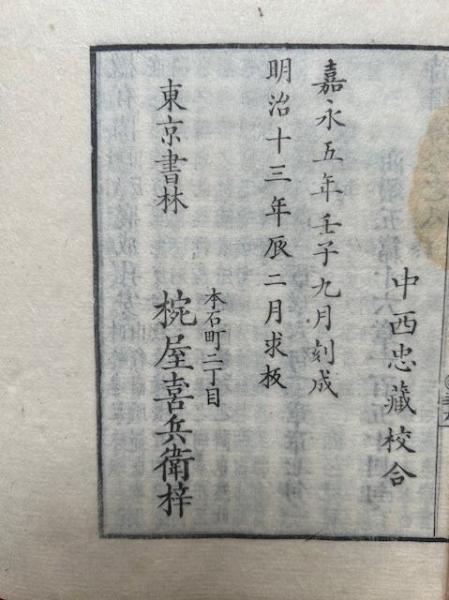 中西忠藏校合
嘉永五年壬子九月刻成
明治十三年辰二月求板
東京書林
本石町二丁目
椀屋喜兵衛梓